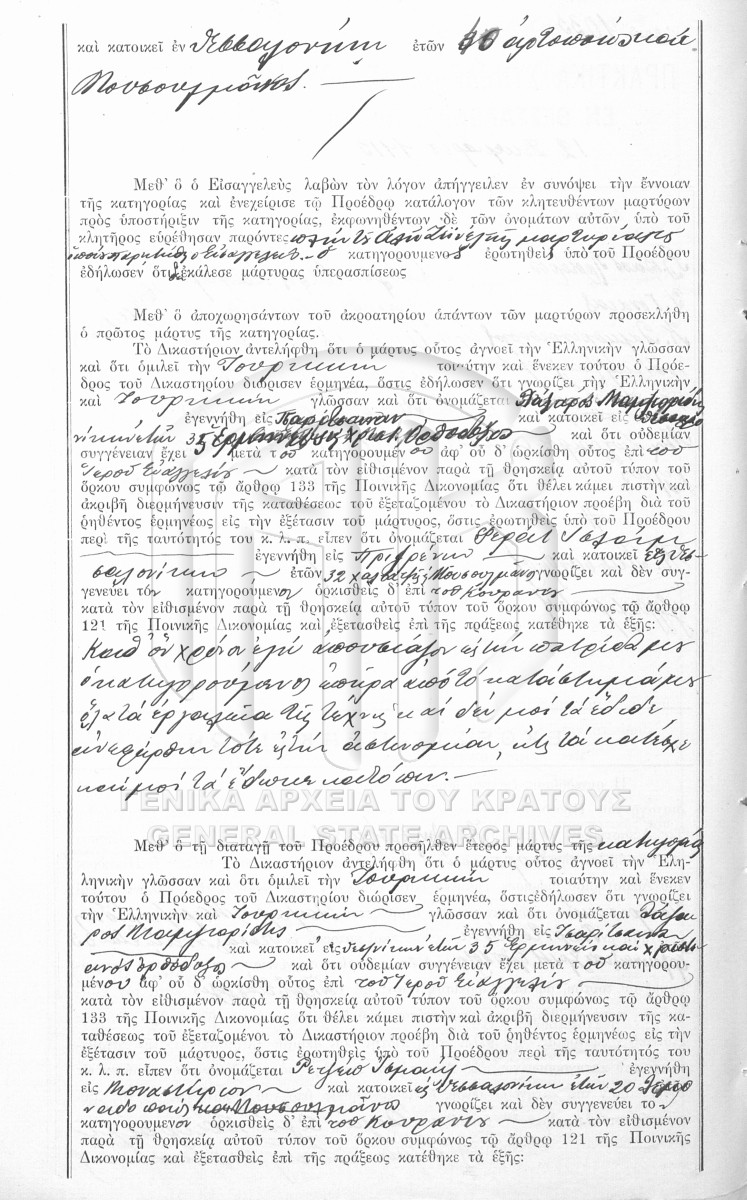 καὶ κατοικεῖ ἐν Θεσσαλονίκῃ ἐτῶν 40 ἀρτοποιὸς καὶ
Μουσουλμᾶνος.
Μεθ' ὃ ὁ Εἰσαγγελεὺς λαβὼν τὸν λόγον ἀπήγγειλεν ἐν συνόψει τὴν ἔννοιαν
τῆς κατηγορίας καὶ ἐνεχείρισε τῷ Προέδρῳ κατάλογον τῶν κλητευθέντων μαρτύρων
πρὸς ὑποστήριξιν τῆς κατηγορίας, ἐκφωνηθέντων δὲ τῶν ὀνομάτων αὐτῶν ὑπὸ τοῦ
κλητῆρος εὑρέθησαν παρόντες πλὴν τοῦ
κατηγορουμενος ἐρωτηθεὶς ὑπὸ τοῦ Προέδρου
ἐδήλωσεν ὅτι δὲν ἐκάλεσε μάρτυρας ὑπερασπίσεως
Μεθ' ὃ ἀποχωρησάντων τοῦ ἀκροατηρίου ἁπάντων τῶν μαρτύρων προσεκλήθη
ὁ πρῶτος μάρτυς τῆς κατηγορίας.
Τὸ Δικαστήριον ἀντελήφθη ὅτι ὁ μάρτυς οὗτος ἀγνοεῖ τὴν Ἑλληνικὴν γλῶσσαν
καὶ ὅτι ὁμιλεῖ τὴν Τουρκικὴν τοιαύτην καὶ ἕνεκεν τούτου ὁ Πρόε-
δρος τοῦ Δικαστηρίου διώρισεν ἑρμηνέα, ὅστις ἐδήλωσεν ὅτι γνωρίζει τὴν Ἑλληνικὴν
καὶ Τουρκικὴν γλῶσσαν καὶ ὅτι ὀνομάζεται Λάζαρος
ἐγεννήθη εἰς καὶ κατοικεῖ εἰς Θεσσαλο
νίκην ἐτῶν 35 ἑρμηνεὺς Χριστ. Ὀρθόδοξος καὶ ὅτι οὐδεμίαν
συγγένειαν ἔχει μετὰ τοῦ κατηγορουμένου ἀφ' οὗ δ' ὡρκίσθη οὗτος ἐπὶ τοῦ
Ἱεροῦ Εὐαγγελίου κατὰ τὸν εἰθισμένον παρὰ τῇ θρησκείᾳ αὐτοῦ τύπον τοῦ
ὅρκου συμφώνως τῷ ἄρθρῳ 133 τῆς Ποινικῆς Δικονομίας ὅτι θέλει κάμει πιστὴν καὶ
ἀκριβῆ διερμήνευσιν τῆς καταθέσεως τοῦ ἐξεταζομένου τὸ Δικαστήριον προέβη διὰ τοῦ
ῥηθέντος ἑρμηνέως εἰς τὴν ἐξέτασιν τοῦ μάρτυρος, ὅστις ἐρωτηθεὶς ὑπὸ τοῦ Προέδρου
περὶ τῆς ταυτότητός του κ. λ. π. εἶπεν ὅτι ὀνομάζεται
ἐγεννήθη εἰς Πριζρένην καὶ κατοικεῖ εἰς Θεσ-
σαλονίκην ἐτῶν 32 Μουσουλμᾶνος γνωρίζει καὶ δὲν συγ-
γενεύει τὸν κατηγορούμενον ὁρκισθεὶς δ' ἐπὶ τοῦ Κουρανίου
κατὰ τὸν εἰθισμένον παρὰ τῇ θρησκείᾳ αὐτοῦ τύπον τοῦ ὅρκου συμφώνως τῷ ἄρθρῳ
121 τῆς Ποινικῆς Δικονομίας καὶ ἐξετασθεὶς ἐπὶ τῆς πράξεως κατέθηκε τὰ ἑξῆς:
Καθ' ὃν χρόνον ἐγὼ ἀπουσίαζον εἰς τὴν πατρίδα μου
ὁ κατηγορούμενος ἐπῆρε ἀπὸ τὸ κατάστημά μου
ὅλα τὰ ἐργαλεῖα τῆς τέχνης καὶ δὲν μοὶ τὰ ἔδιδε
ἀνεφέρθην τότε εἰς τὴν ἀστυνομίαν, ἥτις τὰ κατέσχε
καὶ μοὶ τὰ ἔδωκε κατόπιν.
ΓΕΝΙΚΑ ΑΡΧΕΙΑ ΤΟΥ ΚΡΑΤΟΥΣ
GENERAL STATE ARCHIVES
Μεθ' ὃ τῇ διαταγῇ τοῦ Προέδρου προσῆλθεν ἕτερος μάρτυς τῆς κατηγορίας
Τὸ Δικαστήριον ἀντελήφθη ὅτι ὁ μάρτυς οὗτος ἀγνοεῖ τὴν Ἑλ-
ληνικὴν γλῶσσαν καὶ ὅτι ὁμιλεῖ τὴν Τουρκικὴν τοιαύτην καὶ ἕνεκεν
τούτου ὁ Πρόεδρος τοῦ Δικαστηρίου διώρισεν ἑρμηνέα, ὅστις ἐδήλωσεν ὅτι γνωρίζει
τὴν Ἑλληνικὴν καὶ Τουρκικὴν γλῶσσαν καὶ ὅτι ὀνομάζεται Λάζα
ρος ἐγεννήθη εἰς
καὶ κατοικεῖ εἰς Θεσ/νίκην ἐτῶν 35 Ἑρμηνεὺς καὶ Χριστι
ανὸς ὀρθόδοξος καὶ ὅτι οὐδεμίαν συγγένειαν ἔχει μετὰ τοῦ κατηγορου-
μένου ἀφ' οὗ δ' ὡρκίσθη οὗτος ἐπὶ τοῦ Ἱεροῦ Εὐαγγελίου
κατὰ τὸν εἰθισμένον παρὰ τῇ θρησκείᾳ αὐτοῦ τύπον τοῦ ὅρκου συμφώνως τῷ ἄρθρῳ
133 τῆς Ποινικῆς Δικονομίας ὅτι θέλει κάμει πιστὴν καὶ ἀκριβῆ διερμήνευσιν τῆς κα-
ταθέσεως τοῦ ἐξεταζομένοι τὸ Δικαστήριον προέβη διὰ τοῦ ῥηθέντος ἑρμηνέως εἰς τὴν
ἐξέτασιν τοῦ μάρτυρος, ὅστις ἐρωτηθεὶς ὑπὸ τοῦ Προέδρου περὶ τῆς ταυτότητός του
κ. λ. π. εἶπεν ὅτι ὀνομάζεται Ρετζὲπ Ἰσμαὴλ ἐγεννήθη
εἰς Μοναστήριον καὶ κατοικεῖ εἰς Θεσσαλονίκην ἐτῶν 20
Μουσουλμᾶνος γνωρίζει καὶ δὲν συγγενεύει τὸν
κατηγορουμενον ὁρκισθεὶς δ' ἐπὶ τοῦ Κουρανίου κατὰ τὸν εἰθισμένον
παρὰ τῇ θρησκείᾳ αὐτοῦ τύπον τοῦ ὅρκου συμφώνως τῷ ἄρθρῳ 121 τῆς Ποινικῆς
Δικονομίας καὶ ἐξετασθεὶς ἐπὶ τῆς πράξεως κατέθηκε τὰ ἑξῆς: